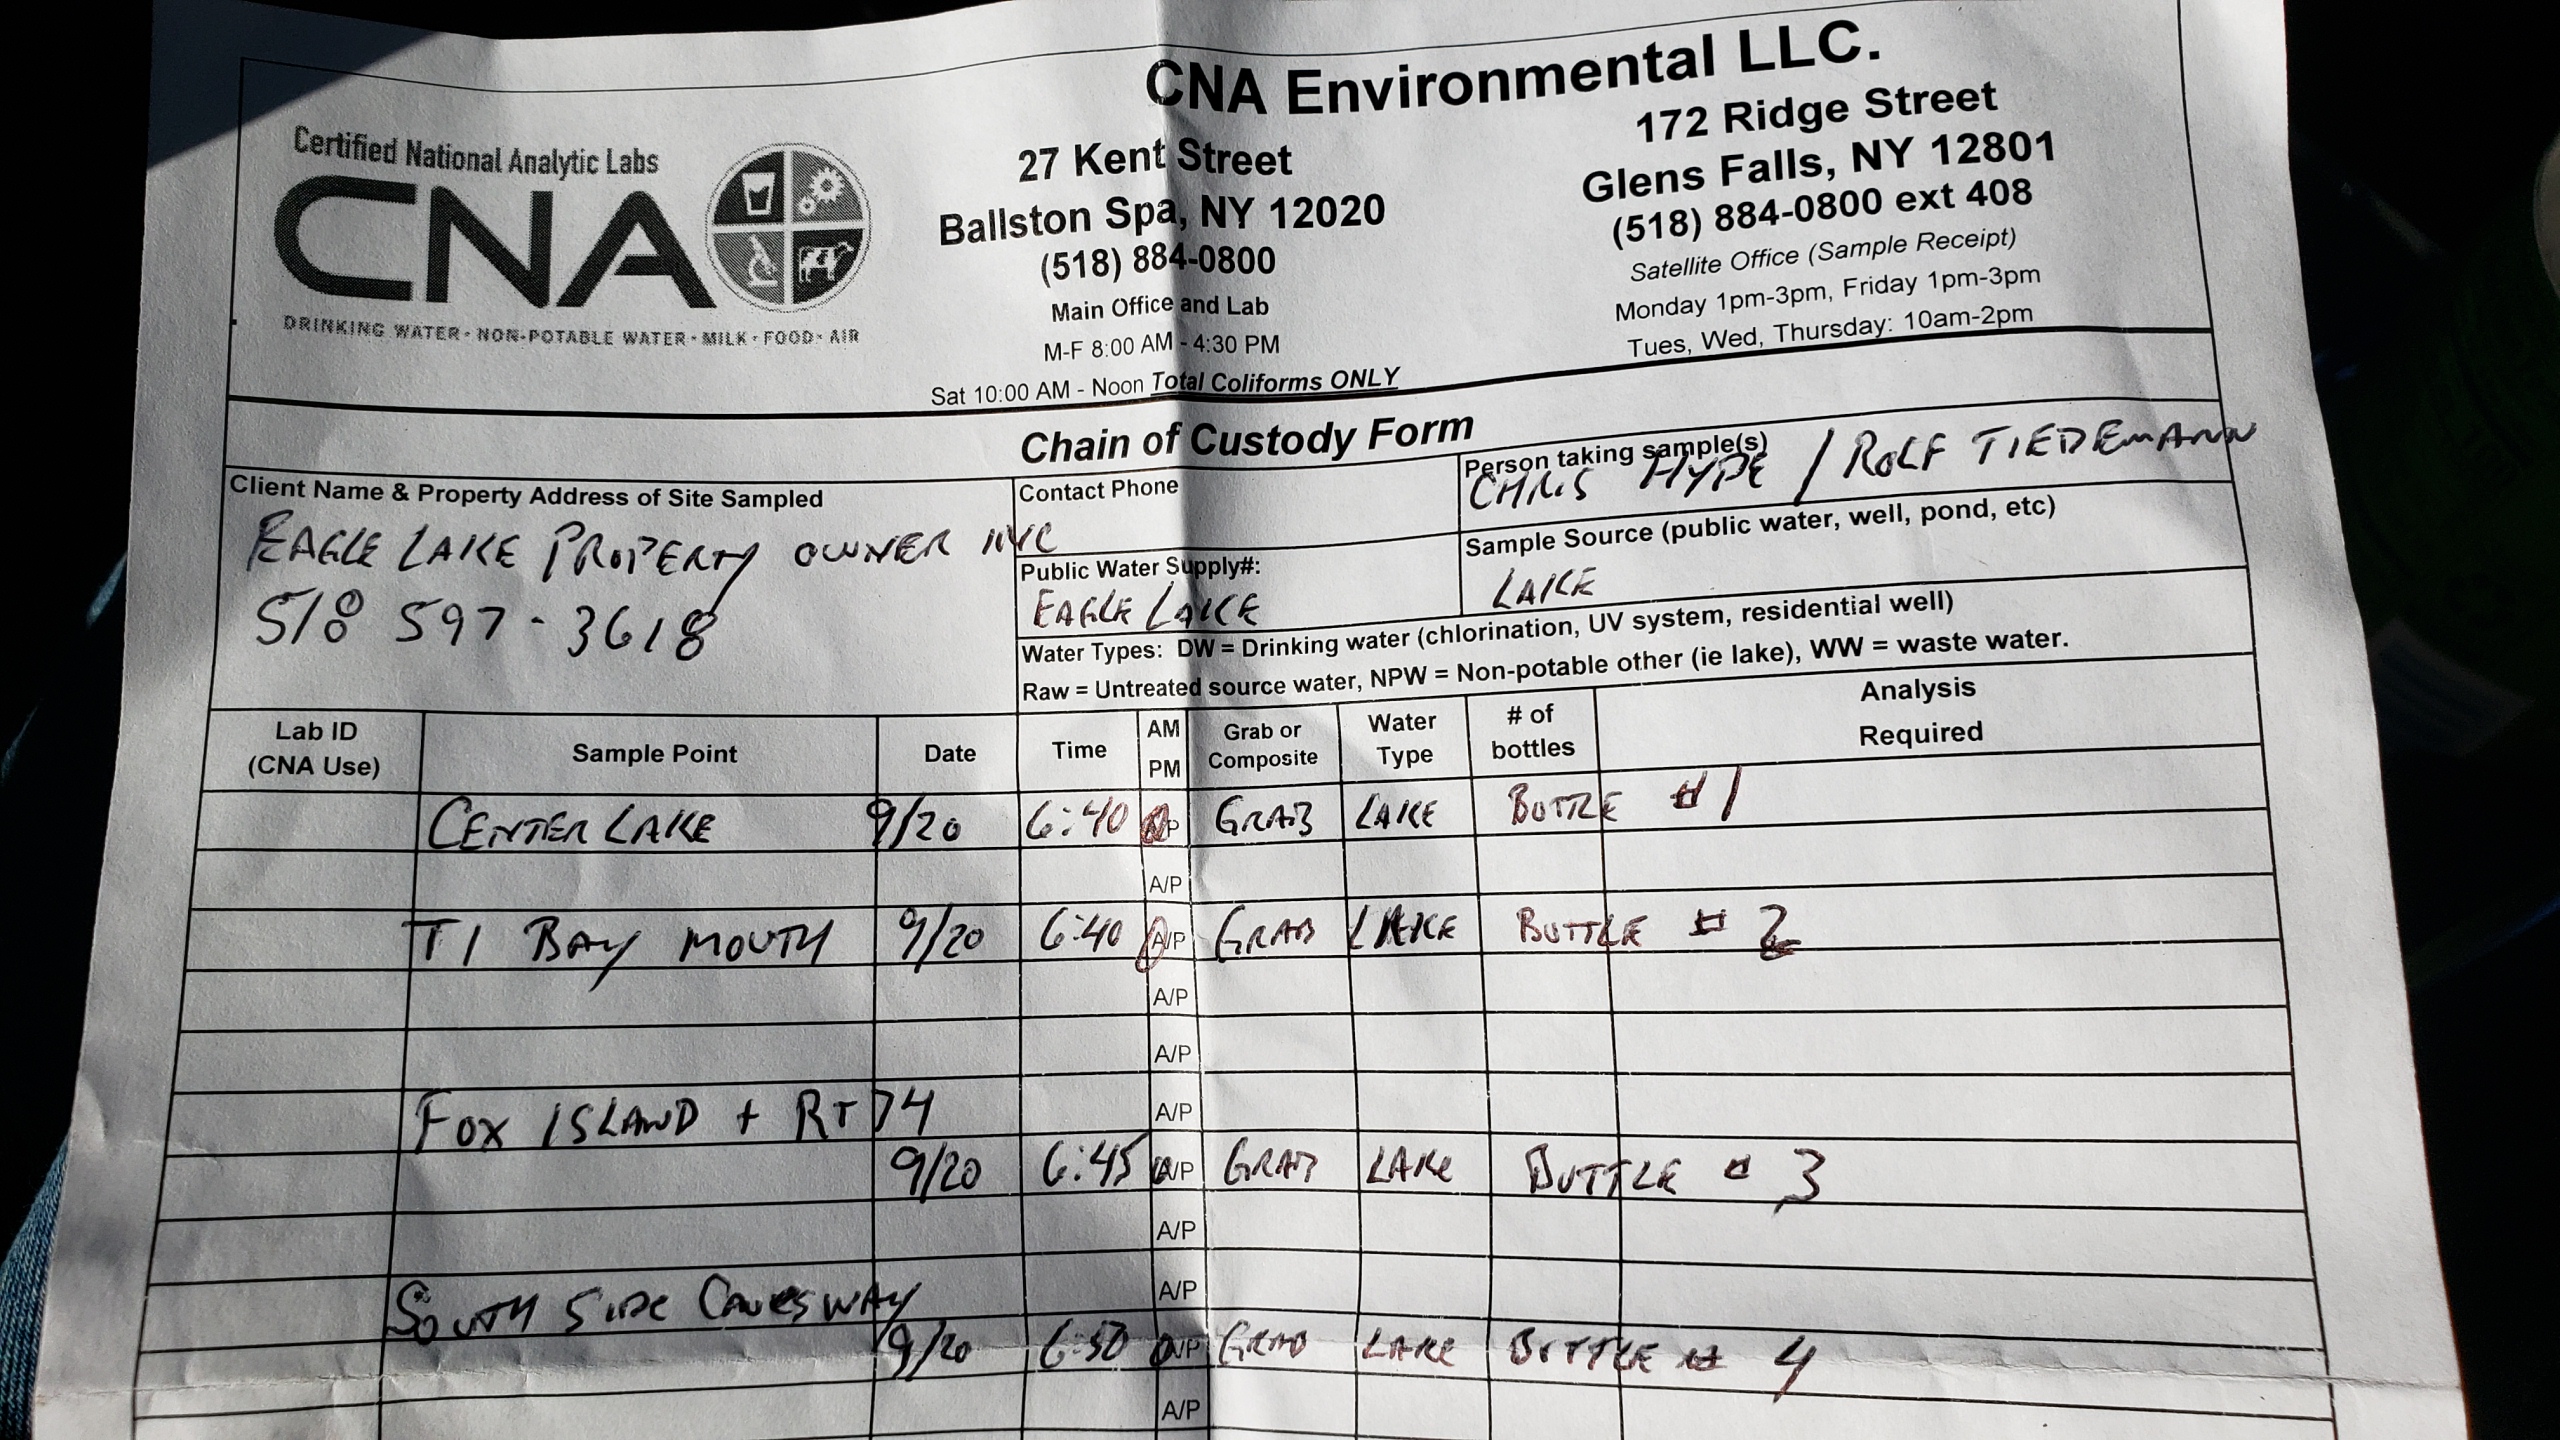 CNA Environmental LLC.
Certified National Analytic Labs
CNA
DRINKING WATER · NON-POTABLE WATER · MILK · FOOD · AIR
27 Kent Street
Ballston Spa, NY 12020
(518) 884-0800
Main Office and Lab
M-F 8:00 AM - 4:30 PM
Sat 10:00 AM - Noon Total Coliforms ONLY
172 Ridge Street
Glens Falls, NY 12801
(518) 884-0800 ext 408
Satellite Office (Sample Receipt)
Monday 1pm-3pm, Friday 1pm-3pm
Tues, Wed, Thursday: 10am-2pm
Chain of Custody Form
Client Name & Property Address of Site Sampled
EAGLE LAKE PROPERTY OWNER INC
518 597-3618
Contact Phone
Person taking sample(s)
CHRIS HYDE / ROLF TIEDEMANN
Public Water Supply#:
EAGLE LAKE
Sample Source (public water, well, pond, etc)
LAKE
Water Types: DW = Drinking water (chlorination, UV system, residential well)
Raw = Untreated source water, NPW = Non-potable other (ie lake), WW = waste water.
Lab ID (CNA Use) Sample Point Date Time AM PM Grab or Composite Water Type # of bottles Analysis Required
CENTER LAKE 9/20 6:40 A/P GRAB LAKE BOTTLE #1
A/P
TI BAY MOUTH 9/20 6:40 A/P GRAB LAKE BOTTLE # 2
A/P
A/P
FOX ISLAND + RT 74 A/P
9/20 6:45 A/P GRAB LAKE BOTTLE # 3
A/P
SOUTH SIDE CAUESWAY A/P
9/20 6:50 A/P GRAB LAKE BOTTLE # 4
A/P